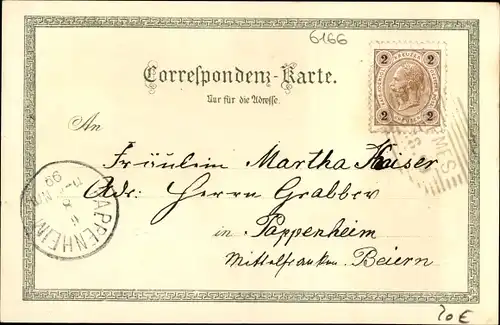 6166
2 KREUZER 2
2 2
Correspondenz-Karte.
Nur für die Adresse.
An
Fräulein Martha Kaiser
Adr: Herrn Grabber
in Pappenheim
Mittelfranken. Beiern
PAPPENHEIM
99
20€